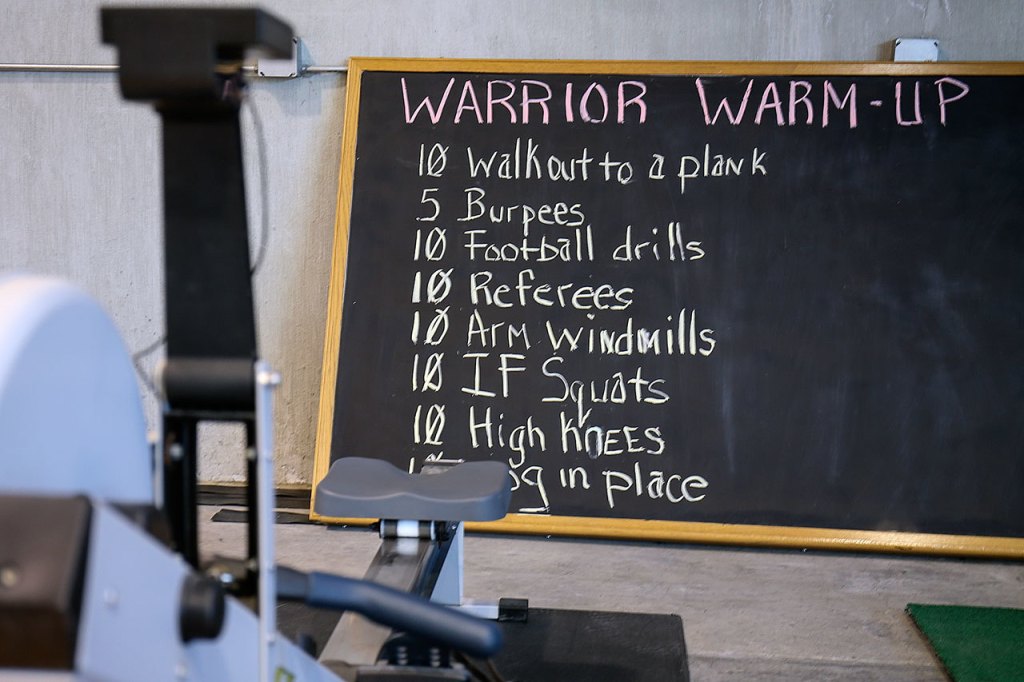 WARRIOR WARM-UP
10 Walkout to a plank
5 Burpees
10 Football drills
10 Referees
10 Arm Windmills
10 IF Squats
10 High KnEES
in place